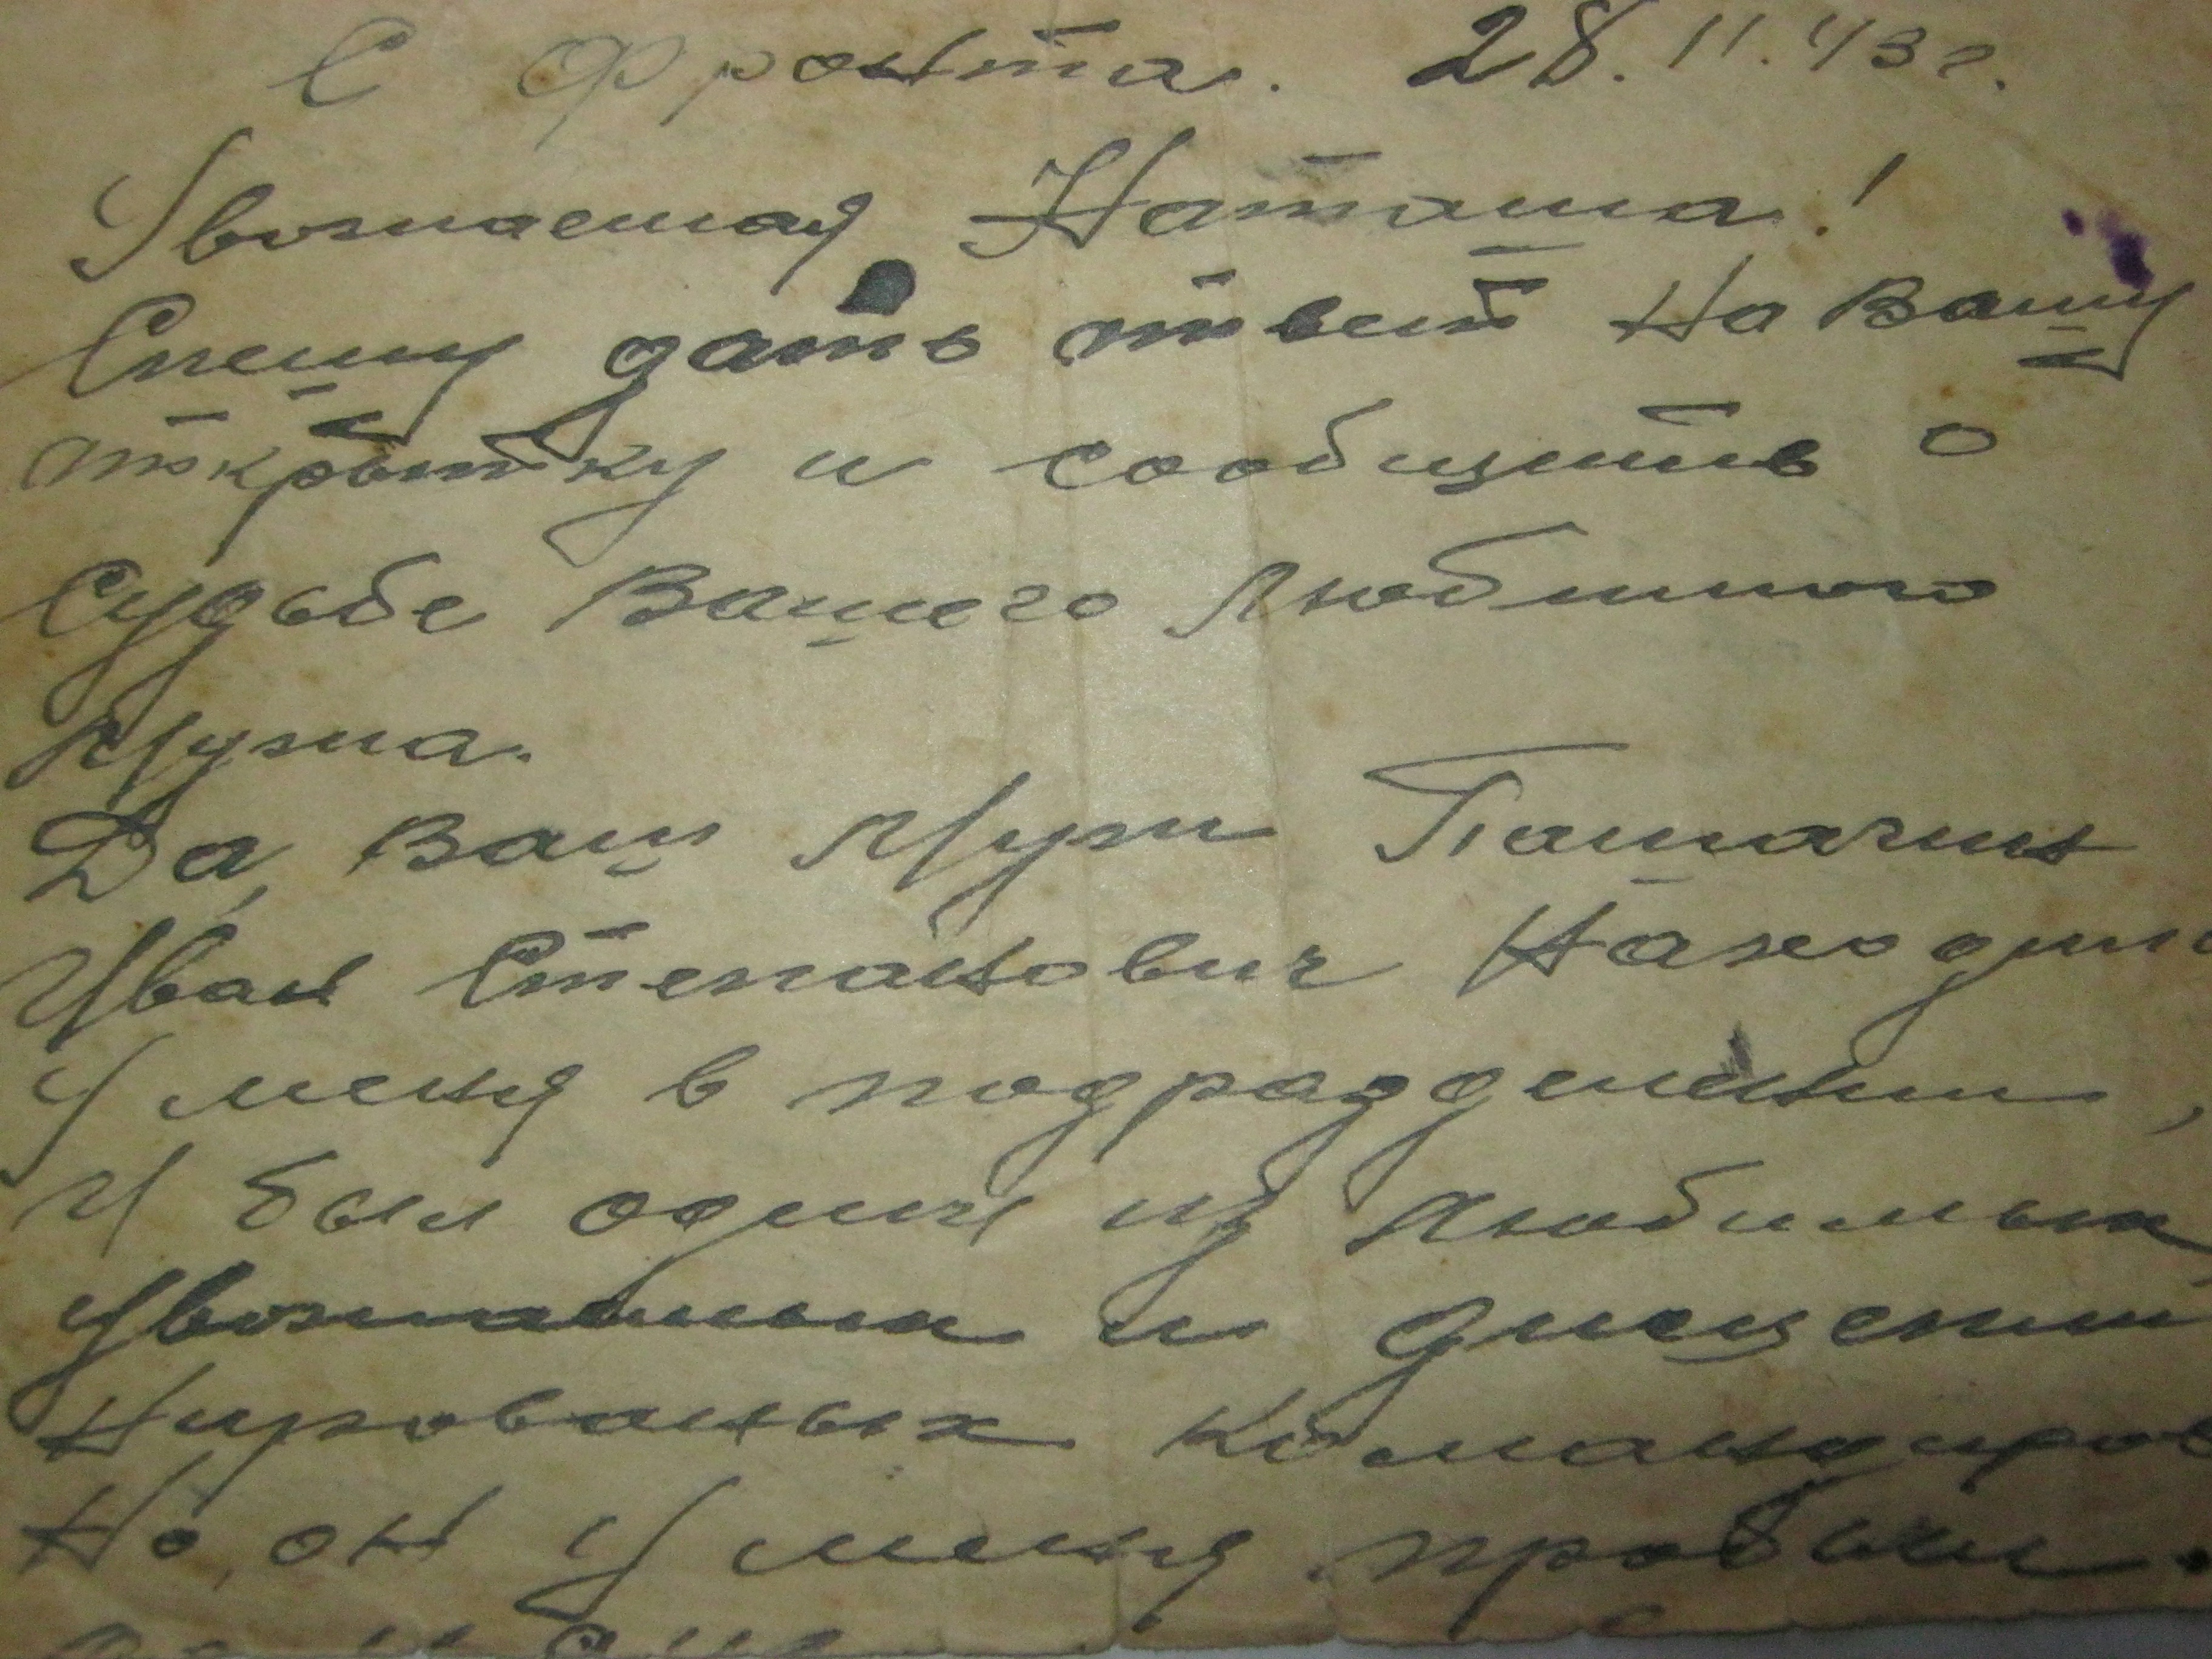 С Фронта. 28.11.43г.
Уважаемая Наташа!
Спешу дать ответ На Вашу
открытку и сообщить о
Судьбе Вашего Любимого
Мужа.
Да, Ваш Муж
Иван Степанович Находил
У меня в подразделении,
И был один из Любимых
Уважаемых и дисциплин
Нированых Командиров
Но, он У меня пробыл